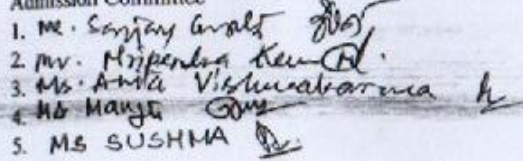 Admission Committee
1. Mr. Sanjay
2. Mr. Nripendra Kum
3. Ms. Anita Vishwakarma
4. Ms Manju
5. MS SUSHMA